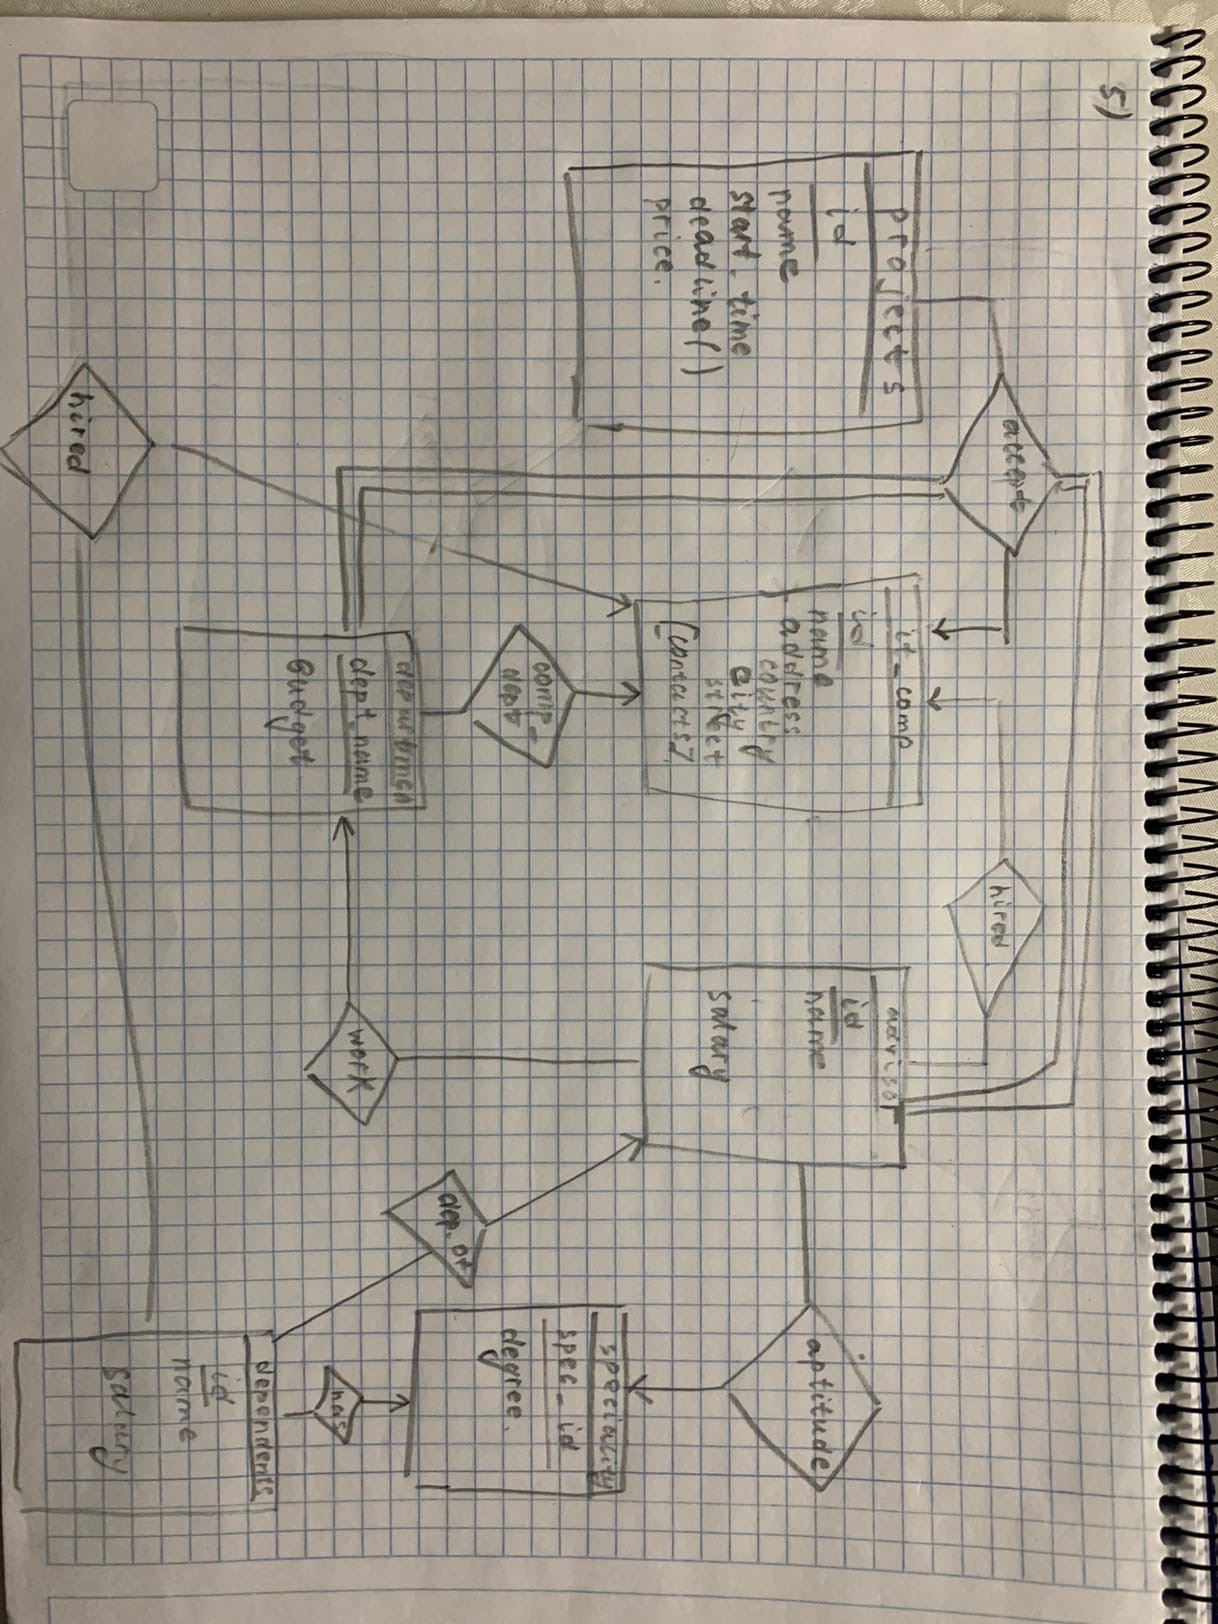 5)
accept
hired
projects
id
name
start_time
deadline()
price.
it_comp
id
name
address
country
city
street
[contacts]
advisor
id
name
salary
aptitude
speciality
spec_id
degree.
comp_
dept
dep. of
departmen
dept_name
Budget
work
has
dependents
id
name
salary
hired